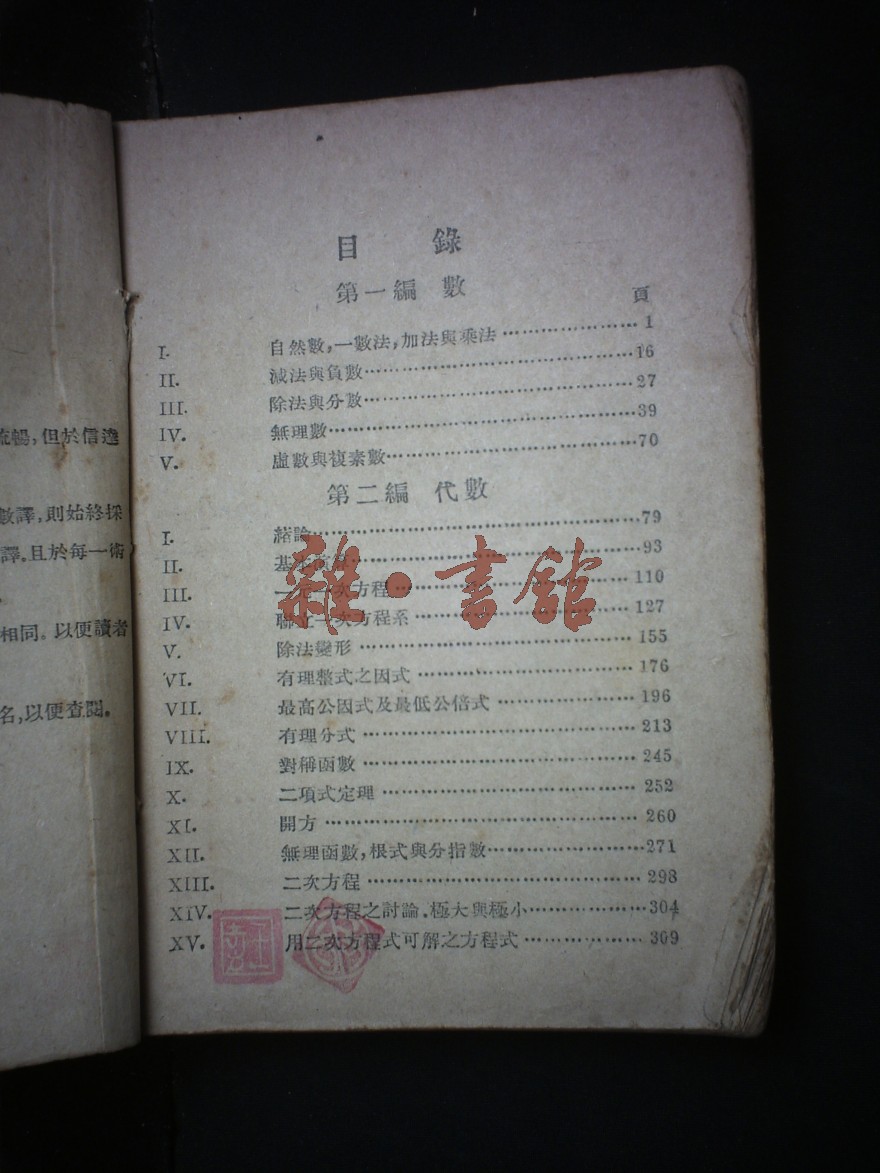 流暢,但於信達
數譯,則始終採
譯,且於每一術
相同。以便讀者
名,以便查閱。
目 錄
第一編 數
頁
I. 自然數,一數法,加法與乘法 1
II. 減法與負數 16
III. 除法與分數 27
IV. 無理數 39
V. 虛數與複素數 70
第二編 代數
I. 緒論 79
II. 基 93
III. 一元一次方程 110
IV. 聯立一次方程系 127
V. 除法變形 155
VI. 有理整式之因式 176
VII. 最高公因式及最低公倍式 196
VIII. 有理分式 213
IX. 對稱函數 245
X. 二項式定理 252
XI. 開方 260
XII. 無理函數,根式與分指數 271
XIII. 二次方程 298
XIV. 二次方程之討論.極大與極小 304
XV. 用二次方程式可解之方程式 309
雜·書館